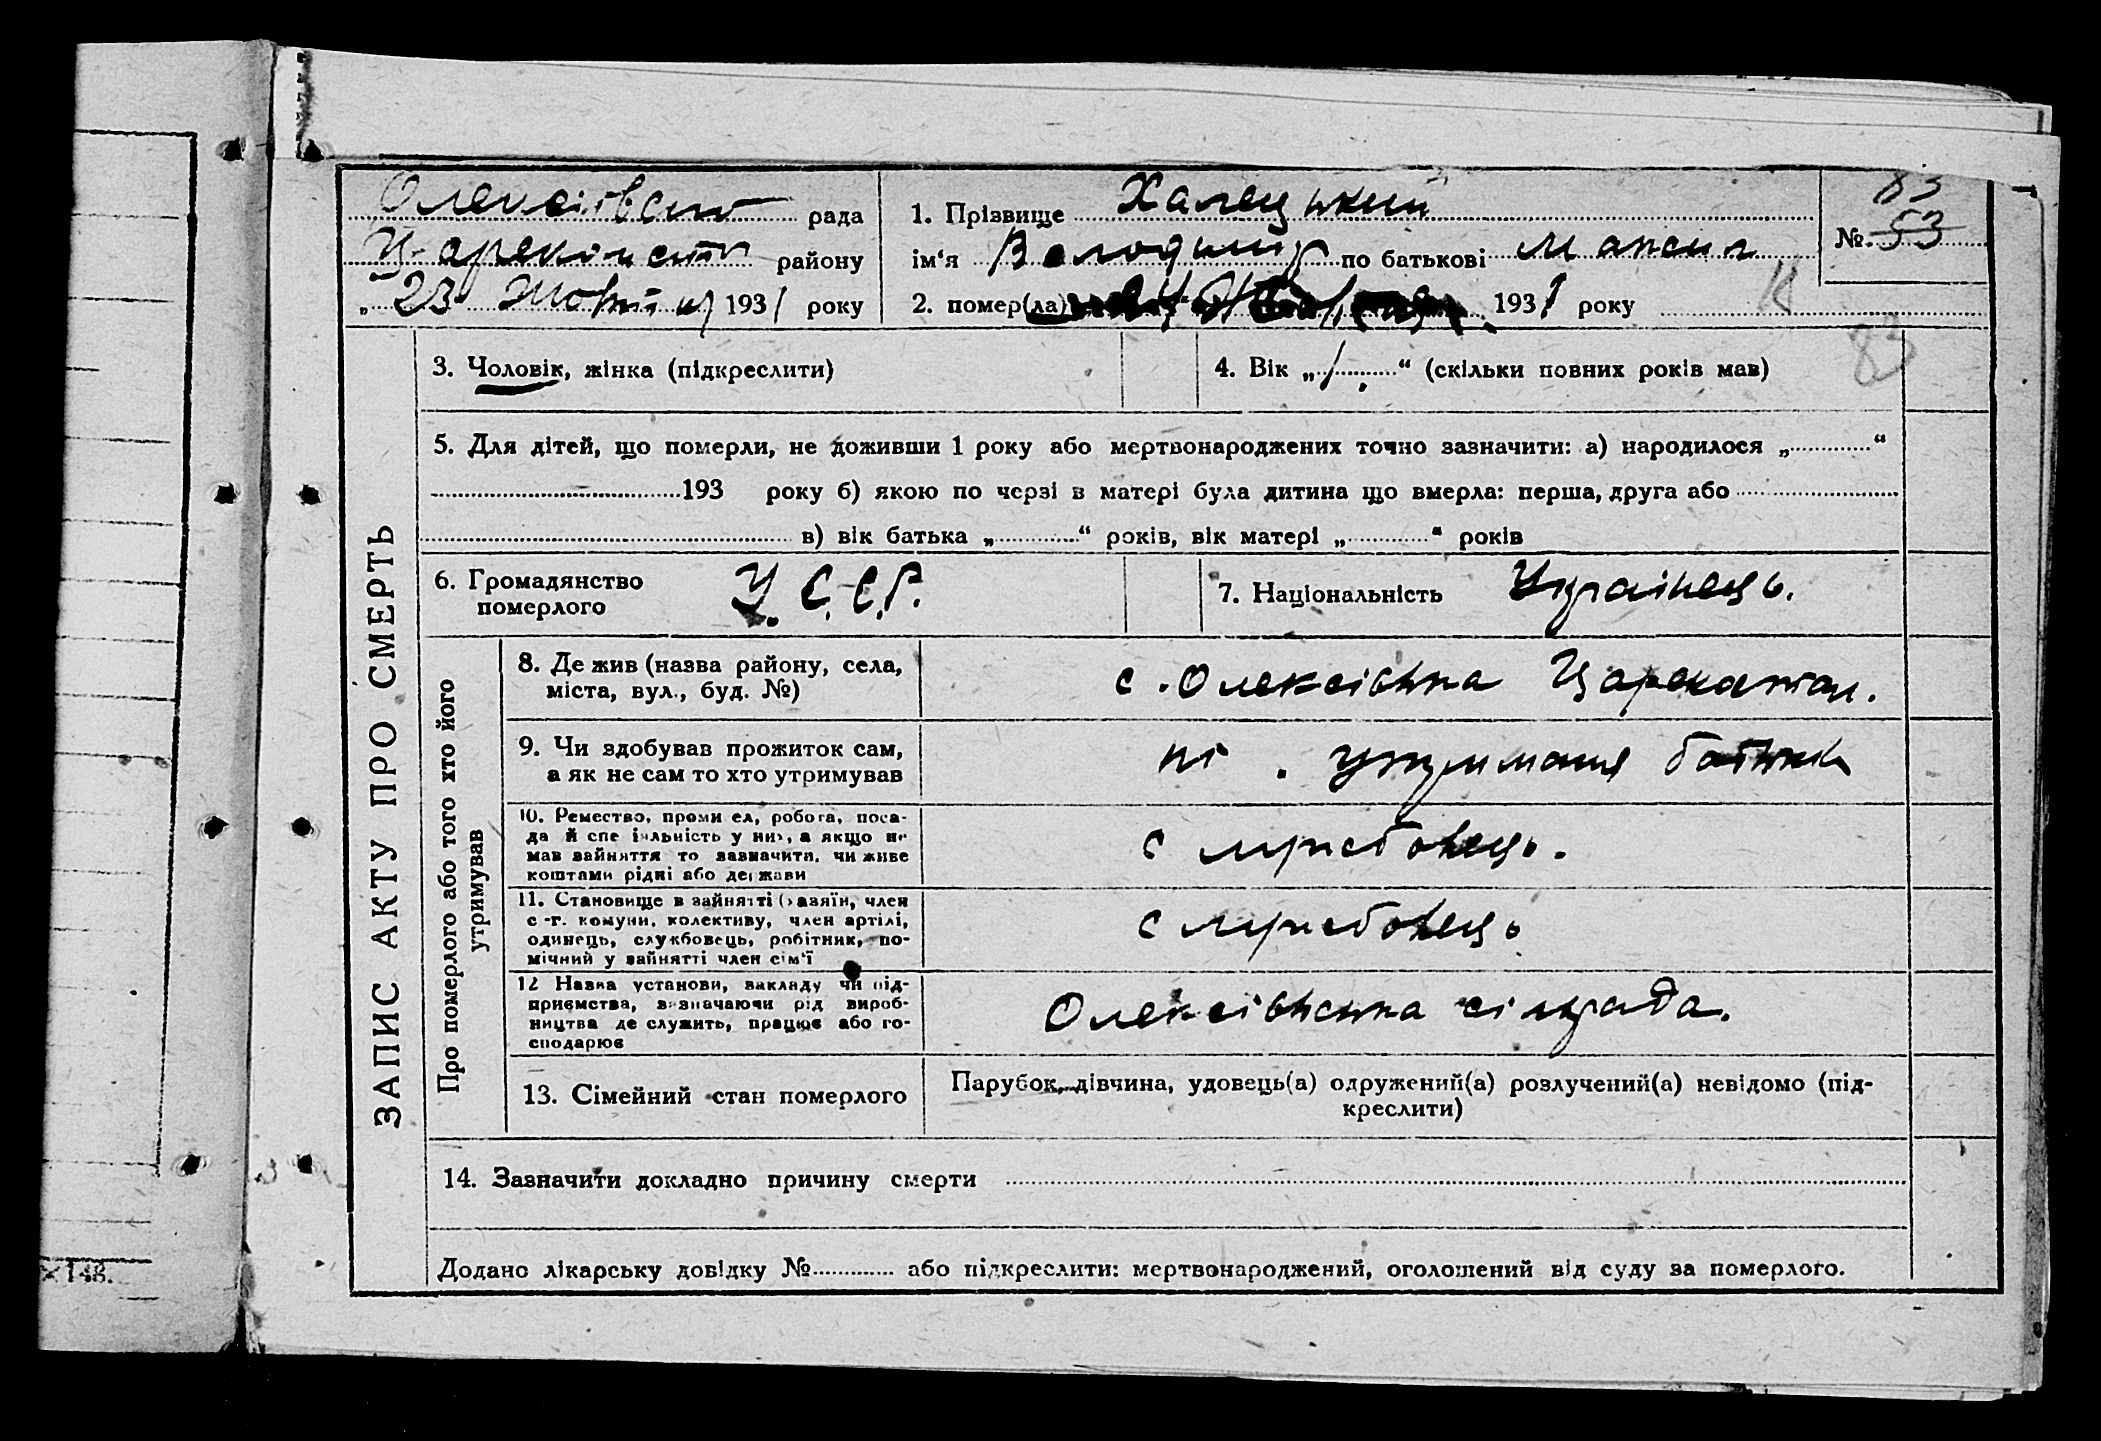 Олексіївська рада
Царекост району
„ 23 Жовтня 1931 року
1. Прізвище Халецький
ім‘я Володимир по батькові Максим
2. помер(ла) 1931 року
83
№ 53
83
3. Чоловік, жінка (підкреслити)
4. Вік „ 1 “ (скільки повних років мав)
5. Для дітей, що померли, не доживши 1 року або мертвонароджених точно зазначити: а) народилося „ “
193 року б) якою по черзі в матері була дитина що вмерла: перша, друга або
в) вік батька „ “ років, вік матері „ “ років
6. Громадянство
померлого
У.С.С.Р.
7. Національність Українець.
ЗАПИС АКТУ ПРО СМЕРТЬ
Про померлого або того хто його
утримував
8. Де жив (назва району, села,
міста, вул., буд. №)
с. Олексіївка
9. Чи здобував прожиток сам,
а як не сам то хто утримував
ні. утримання батька
10. Ремество, промисел, робота, поса-
да й спеціяльність у них, а якщо не
мав зайняття то зазначити, чи живе
коштами рідні або держави
службовець.
11. Становище в зайнятті (хазяїн, член
с.-г. комуни, колективу, член артілі,
одинець, службовець, робітник, по-
мічний у зайнятті член сім‘ї
службовець
12 Назва установи, закладу чи під-
приємства, визначаючи рід вироб-
ництва де служить, працює або го-
сподарює
Олексіївська сільрада.
13. Сімейний стан померлого
Парубок, дівчина, удовець(а) одружений(а) розлучений(а) невідомо (під-
креслити)
14. Зазначити докладно причину смерти
Додано лікарську довідку № або підкреслити: мертвонароджений, оголошений від суду за померлого.
×148.